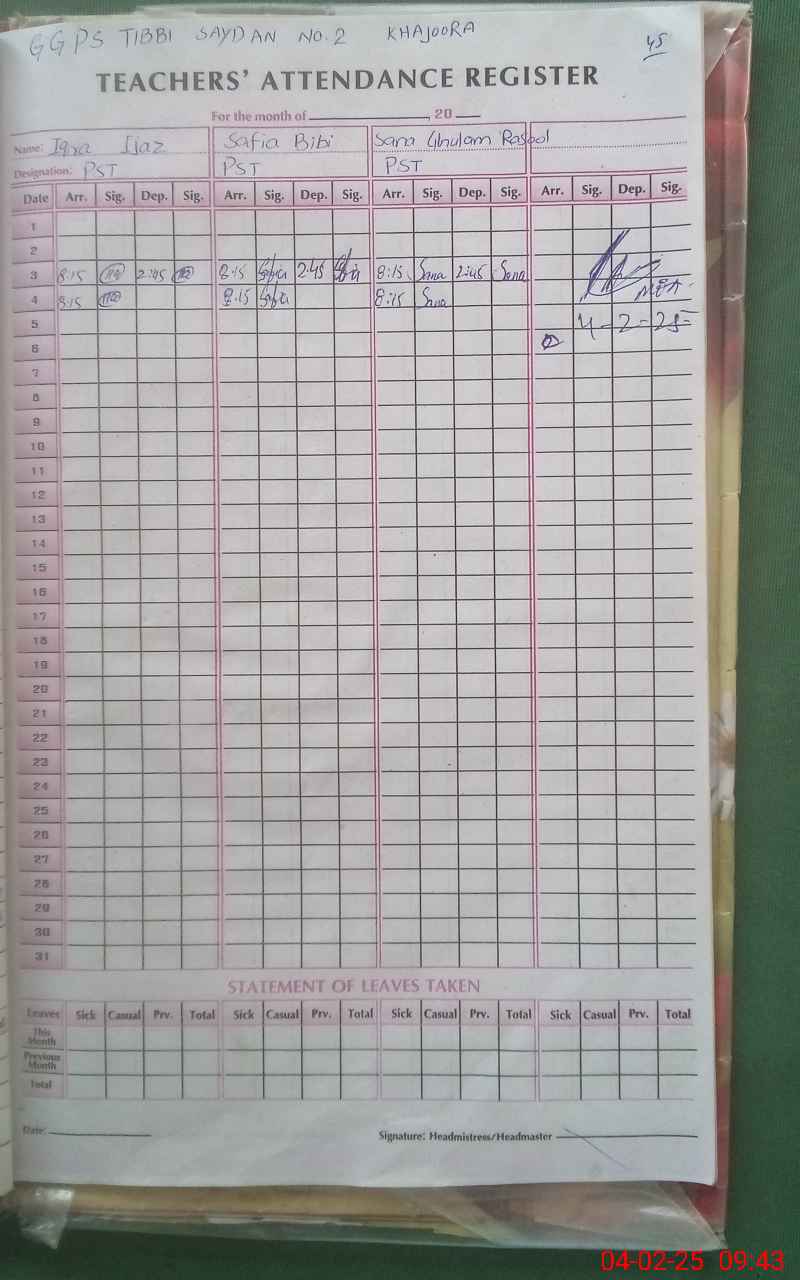 GGPS TIBBI SAYDAN NO.2 KHAJOORA
45
TEACHERS' ATTENDANCE REGISTER
For the month of , 20
Name: Iqra Ijaz Safia Bibi Sana Ghulam Rasool
Designation: PST PST PST
Date Arr. Sig. Dep. Sig. Arr. Sig. Dep. Sig. Arr. Sig. Dep. Sig. Arr. Sig. Dep. Sig.
1
2
3 8:15 2:45 8:15 Safia 2:45 Safia 8:15 Sana 2:45 Sana
4 8:15 8:15 Safia 8:15 Sana MEA
5 4-2-25
6
7
8
9
10
11
12
13
14
15
16
17
18
19
20
21
22
23
24
25
26
27
28
29
30
31
STATEMENT OF LEAVES TAKEN
Leaves Sick Casual Prv. Total Sick Casual Prv. Total Sick Casual Prv. Total Sick Casual Prv. Total
This Month
Previous Month
Total
Date: Signature: Headmistress/Headmaster
04-02-25 09:43